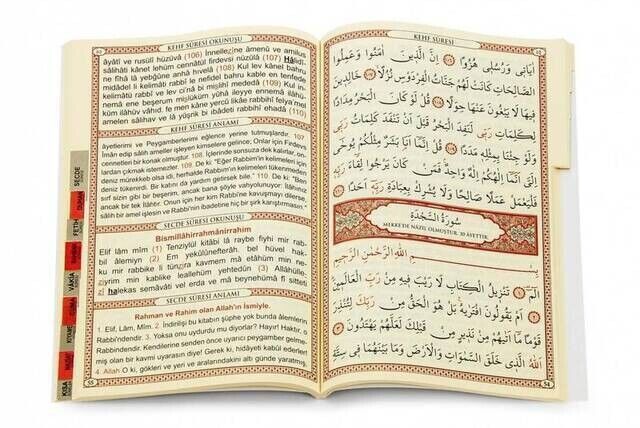 KEHF SÛRESİ OKUNUŞU
âyâtî ve rusulî hüzüvâ (106) İnnellezîne âmenû ve amilus
sâlihâti kânet lehüm cennâtül firdevsi nüzülâ (107) Hâlidî-
ne fîhâ lâ yebğûne anhâ hıvelâ (108) Kul lev kânel bahru
midâdel li kelimâti rabbî le nefidel bahru kable en tenfede
kelimâtü rabbî ve lev ci'nâ bi mislihî mededâ (109) Kul in-
nemâ ene beşerum mislüküm yûhâ ileyye ennemâ ilâhü-
küm ilâhüv vâhid, fe men kâne yercû likâe rabbihî felya'mel
amelen sâlihav ve lâ yüşrik bi ibâdeti rabbihî ehadâ (110)
KEHF SÛRESİ ANLAMI
âyetlerimi ve Peygamberlerimi eğlence yerine tutmuşlardır. 107
İman edip salih ameller işleyen kimselere gelince; Onlar için Firdevs
cennetleri bir konak olmuştur. 108. İçlerinde sonsuza dek kalırlar, on-
lardan çıkmak istemezler. 109. De ki: "Eğer Rabbim'in kelimeleri için
deniz mürekkeb olsa idi, herhalde Rabbim'in kelimeleri tükenmeden
deniz tükenirdi. Bir katını da yardım getirsek bile." 110. De ki: "Ben
sırf sizin gibi bir beşerim, ancak bana şöyle vahyolunuyor: İlâhınız
ancak bir tek İlâhtır. Onun için her kim Rabbi'ne kavuşmayı dilerse,
salih bir amel işlesin ve Rabbi'nin ibadetine hiç bir şirk karıştırmasın."
SECDE SÛRESİ OKUNUŞU
Bismillâhirrahmânirrahim
Elif lâm mîm (1) Tenzîylül kitâbi lâ raybe fîyhi mir rab-
bil âlemîyn (2) Em yekûlûnefterâh, bel hüvel hak-
ku mir rabbike li tünzira kavmem mâ etâhüm min ne-
zîyrim min kablike leallehüm yehtedûn (3) Allâhülle-
zî halekas semâvâti vel erda ve mâ beynehümâ fî sitteti
SECDE SÛRESİ ANLAMI
Rahman ve Rahim olan Allah'ın İsmiyle.
1. Elif, Lâm, Mîm. 2. İndirilişi bu kitabın şüphe yok bunda âlemlerin
Rabbi'ndendir. 3. Yoksa onu uydurdu mu diyorlar? Hayır! Haktır, o
Rabbi'nden. Kendilerine senden önce uyarıcı peygamber gelme-
miş olan bir kavmi uyarasın diye! Gerek ki, hidâyeti kabûl ederler!
4. Allah O ki, gökleri ve yeri ve aralarındakini altı günde yaratmış,
55
SECDE
DUHAN
FETH
VÂKIA
KISA
KEHF SÛRESİ
اٰيَاتٖي وَرُسُلٖي هُزُوًا ﴿١٠٦﴾ اِنَّ الَّذٖينَ اٰمَنُوا وَعَمِلُوا
الصَّالِحَاتِ كَانَتْ لَهُمْ جَنَّاتُ الْفِرْدَوْسِ نُزُلًا ﴿١٠٧﴾ خَالِدٖينَ
فٖيهَا لَا يَبْغُونَ عَنْهَا حِوَلًا ﴿١٠٨﴾ قُلْ لَوْ كَانَ الْبَحْرُ مِدَادًا
لِكَلِمَاتِ رَبّٖي لَنَفِدَ الْبَحْرُ قَبْلَ اَنْ تَنْفَدَ كَلِمَاتُ رَبّٖي
وَلَوْ جِئْنَا بِمِثْلِهٖ مَدَدًا ﴿١٠٩﴾ قُلْ اِنَّمَا اَنَا بَشَرٌ مِثْلُكُمْ يُوحٰٓى
اِلَيَّ اَنَّمَٓا اِلٰهُكُمْ اِلٰهٌ وَاحِدٌ فَمَنْ كَانَ يَرْجُوا لِقَٓاءَ رَبِّهٖ
فَلْيَعْمَلْ عَمَلًا صَالِحًا وَلَا يُشْرِكْ بِعِبَادَةِ رَبِّهٖٓ اَحَدًا ﴿١١٠﴾
سُورَةُ السَّجْدَةِ
MEKKE'DE NÂZİL OLMUŞTUR. 30 ÂYETTİR.
بِسْمِ اللّٰهِ الرَّحْمٰنِ الرَّحٖيمِ
الٓمٓ ﴿١﴾ تَنْزٖيلُ الْكِتَابِ لَا رَيْبَ فٖيهِ مِنْ رَبِّ الْعَالَمٖينَ
﴿٢﴾ اَمْ يَقُولُونَ افْتَرٰيهُ بَلْ هُوَ الْحَقُّ مِنْ رَبِّكَ لِتُنْذِرَ
قَوْمًا مَٓا اَتٰيهُمْ مِنْ نَذٖيرٍ مِنْ قَبْلِكَ لَعَلَّهُمْ يَهْتَدُونَ ﴿٣﴾
اَللّٰهُ الَّذٖي خَلَقَ السَّمٰوَاتِ وَالْاَرْضَ وَمَا بَيْنَهُمَا فٖي سِتَّةِ
54